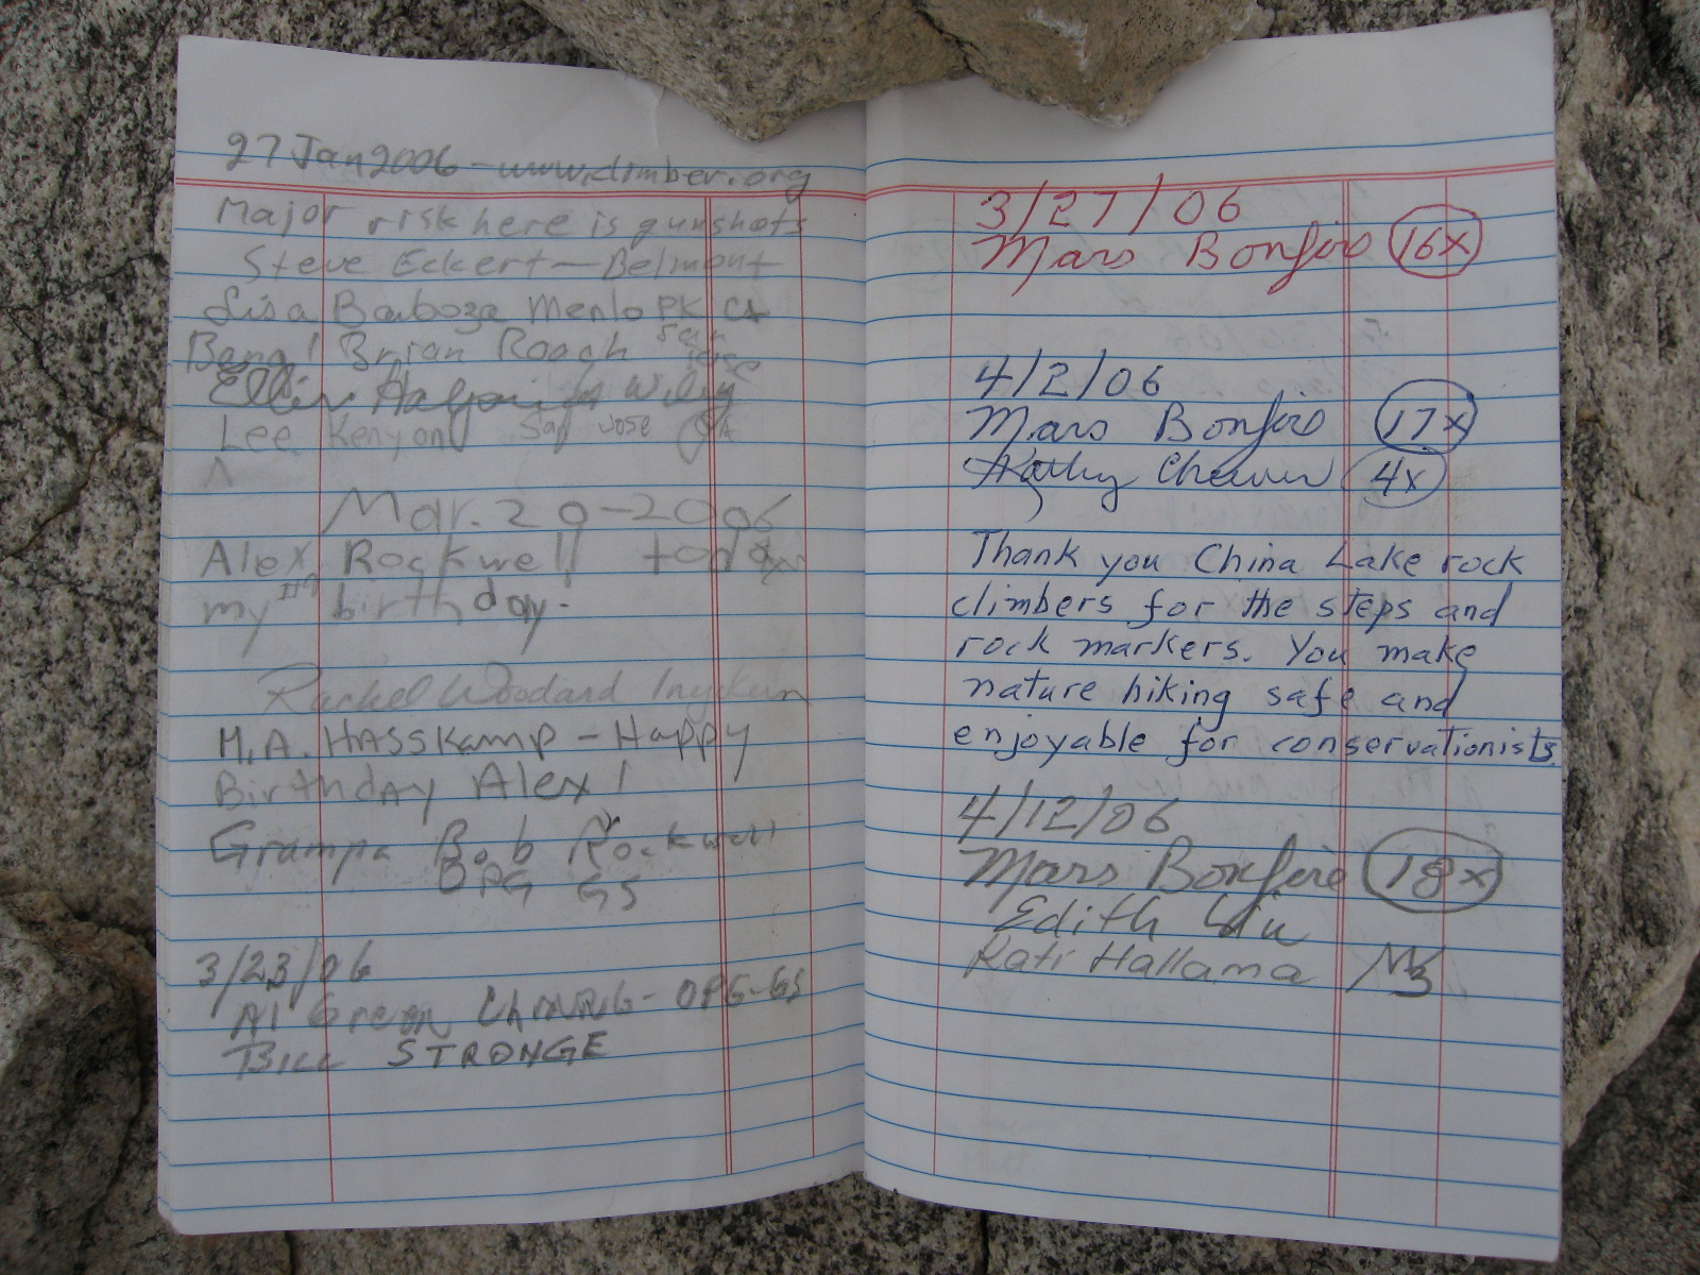 27 Jan 2006 - www.climber.org
Major risk here is gunshots
Steve Eckert - Belmont
Lisa Barboza Menlo PK CA
Bang! Brian Roach San
Jose
Lee Kenyon San Jose CA
Mar. 20-2006
Alex Rockwell today
my birthday.
Rachel Woodard Inyokern
M.A. HASSKAMP - HAPPY
BirthdAy Alex!
Grampa Bob Rockwell
OPG GS
3/23/06
Al Green OPG-GS
BILL STRONGE
3/27/06
Mars Bonfire 16x
4/2/06
Mars Bonfire 17x
Kathy 4x
Thank you China Lake rock
climbers for the steps and
rock markers. You make
nature hiking safe and
enjoyable for conservationists.
4/12/06
Mars Bonfire 18x
Edith Liu
Kati Hallama